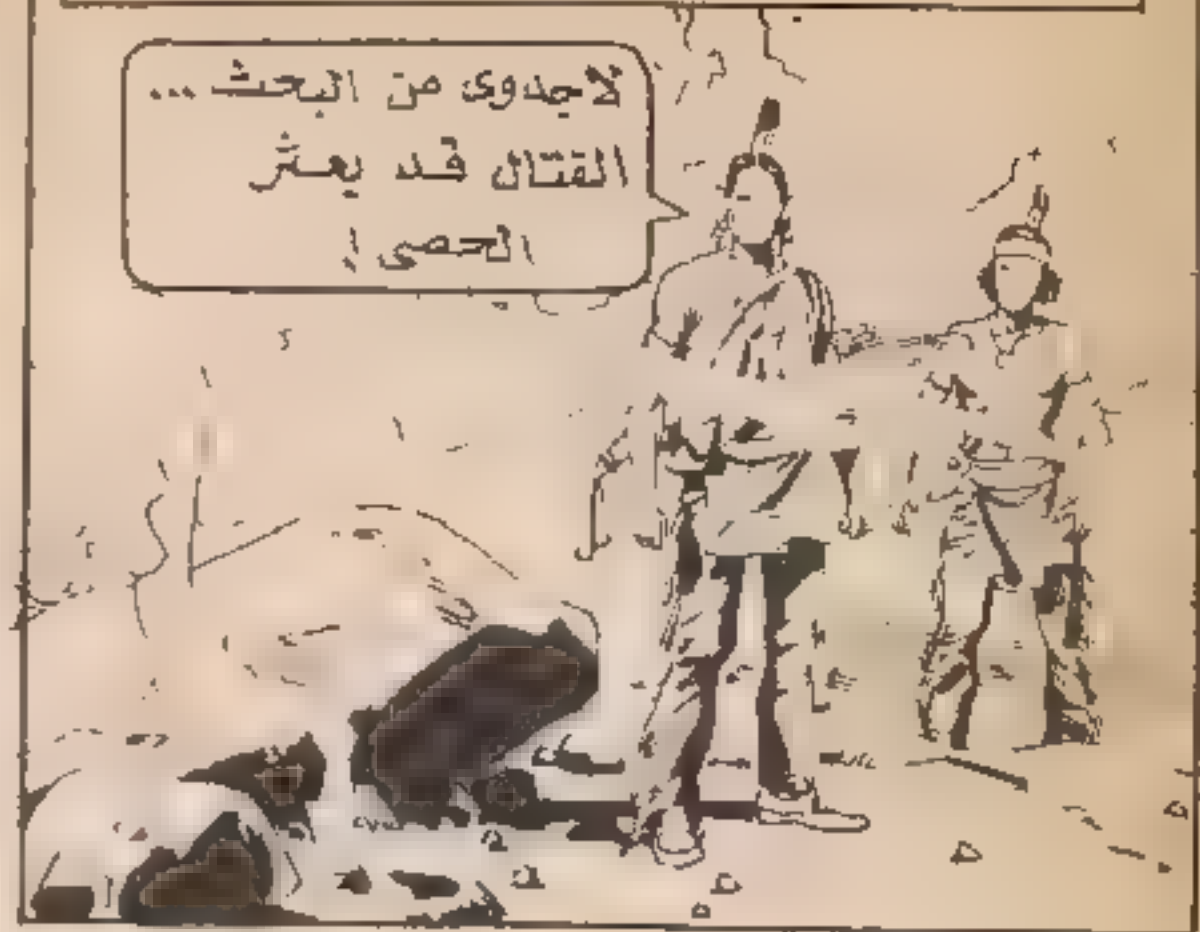 لاجدوى من البحث ...
القتال قد يعثر
الحصى !